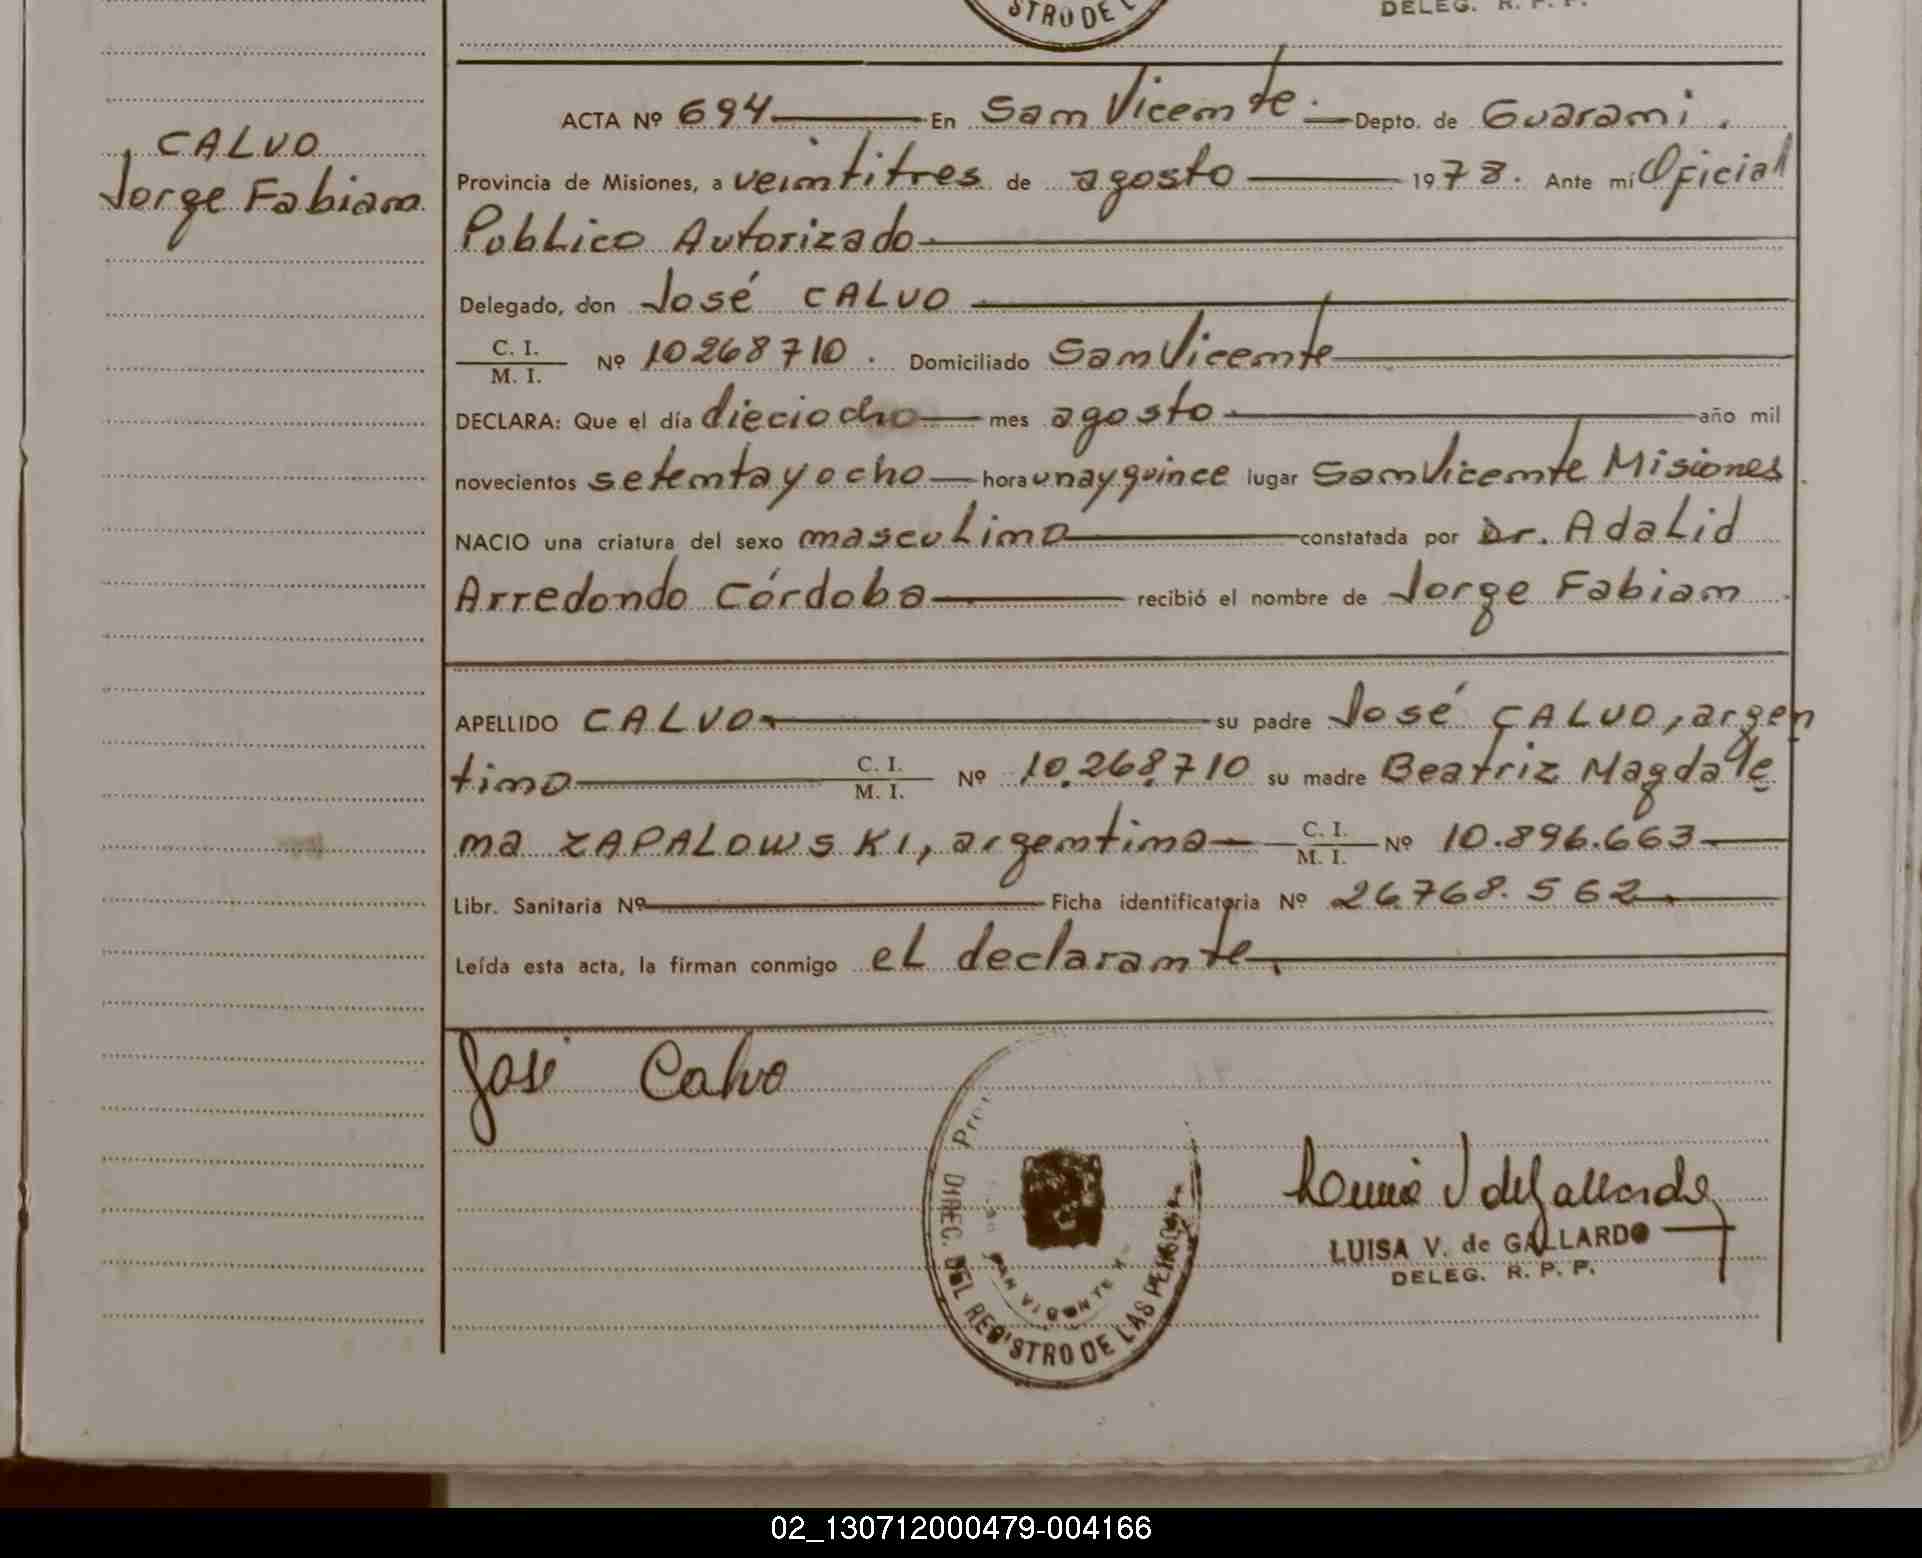 STRO DE L
DELEG. R. P. P.
CALVO
Jorge Fabian
ACTA Nº 694 En San Vicente. Depto. de Guarani.
Provincia de Misiones, a veintitres de agosto 1978. Ante mí Oficial
Publico Autorizado
Delegado, don José CALVO
C. I.
M. I. Nº 10268710. Domiciliado San Vicente
DECLARA: Que el día dieciocho mes agosto año mil
novecientos setenta y ocho hora una y quince lugar San Vicente Misiones
NACIO una criatura del sexo masculino constatada por Dr. Adalid
Arredondo Córdoba recibió el nombre de Jorge Fabian
APELLIDO CALVO su padre José CALVO, argen
tino C. I. M. I. Nº 10.268.710 su madre Beatriz Magdale
na ZAPALOWSKI, argentina C. I. M. I. Nº 10.896.663
Libr. Sanitaria Nº Ficha identificatoria Nº 26.768.562
Leída esta acta, la firman conmigo el declarante.
José Calvo
DIREC. DEL REGISTRO DE LAS PERSONAS
SAN VICENTE
LUISA V. de GALLARDO
DELEG. R. P. P.
02_130712000479-004166